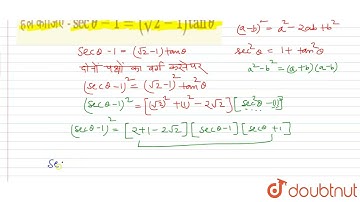 हल कीजिए - secθ - 1 = (√2 - 1) tanθ
(a-b)² = a² - 2ab + b²
secθ - 1 = (√2 - 1) tanθ
sec²θ = 1 + tan²θ
दोनों पक्षों का वर्ग करने पर
a² - b² = (a+b)(a-b)
(secθ - 1)² = (√2 - 1)² tan²θ
(secθ - 1)² = [(√2)² + (1)² - 2√2] [sec²θ - 1]
(secθ - 1)² = [2 + 1 - 2√2] [secθ - 1] [secθ + 1]
se
doubtnut